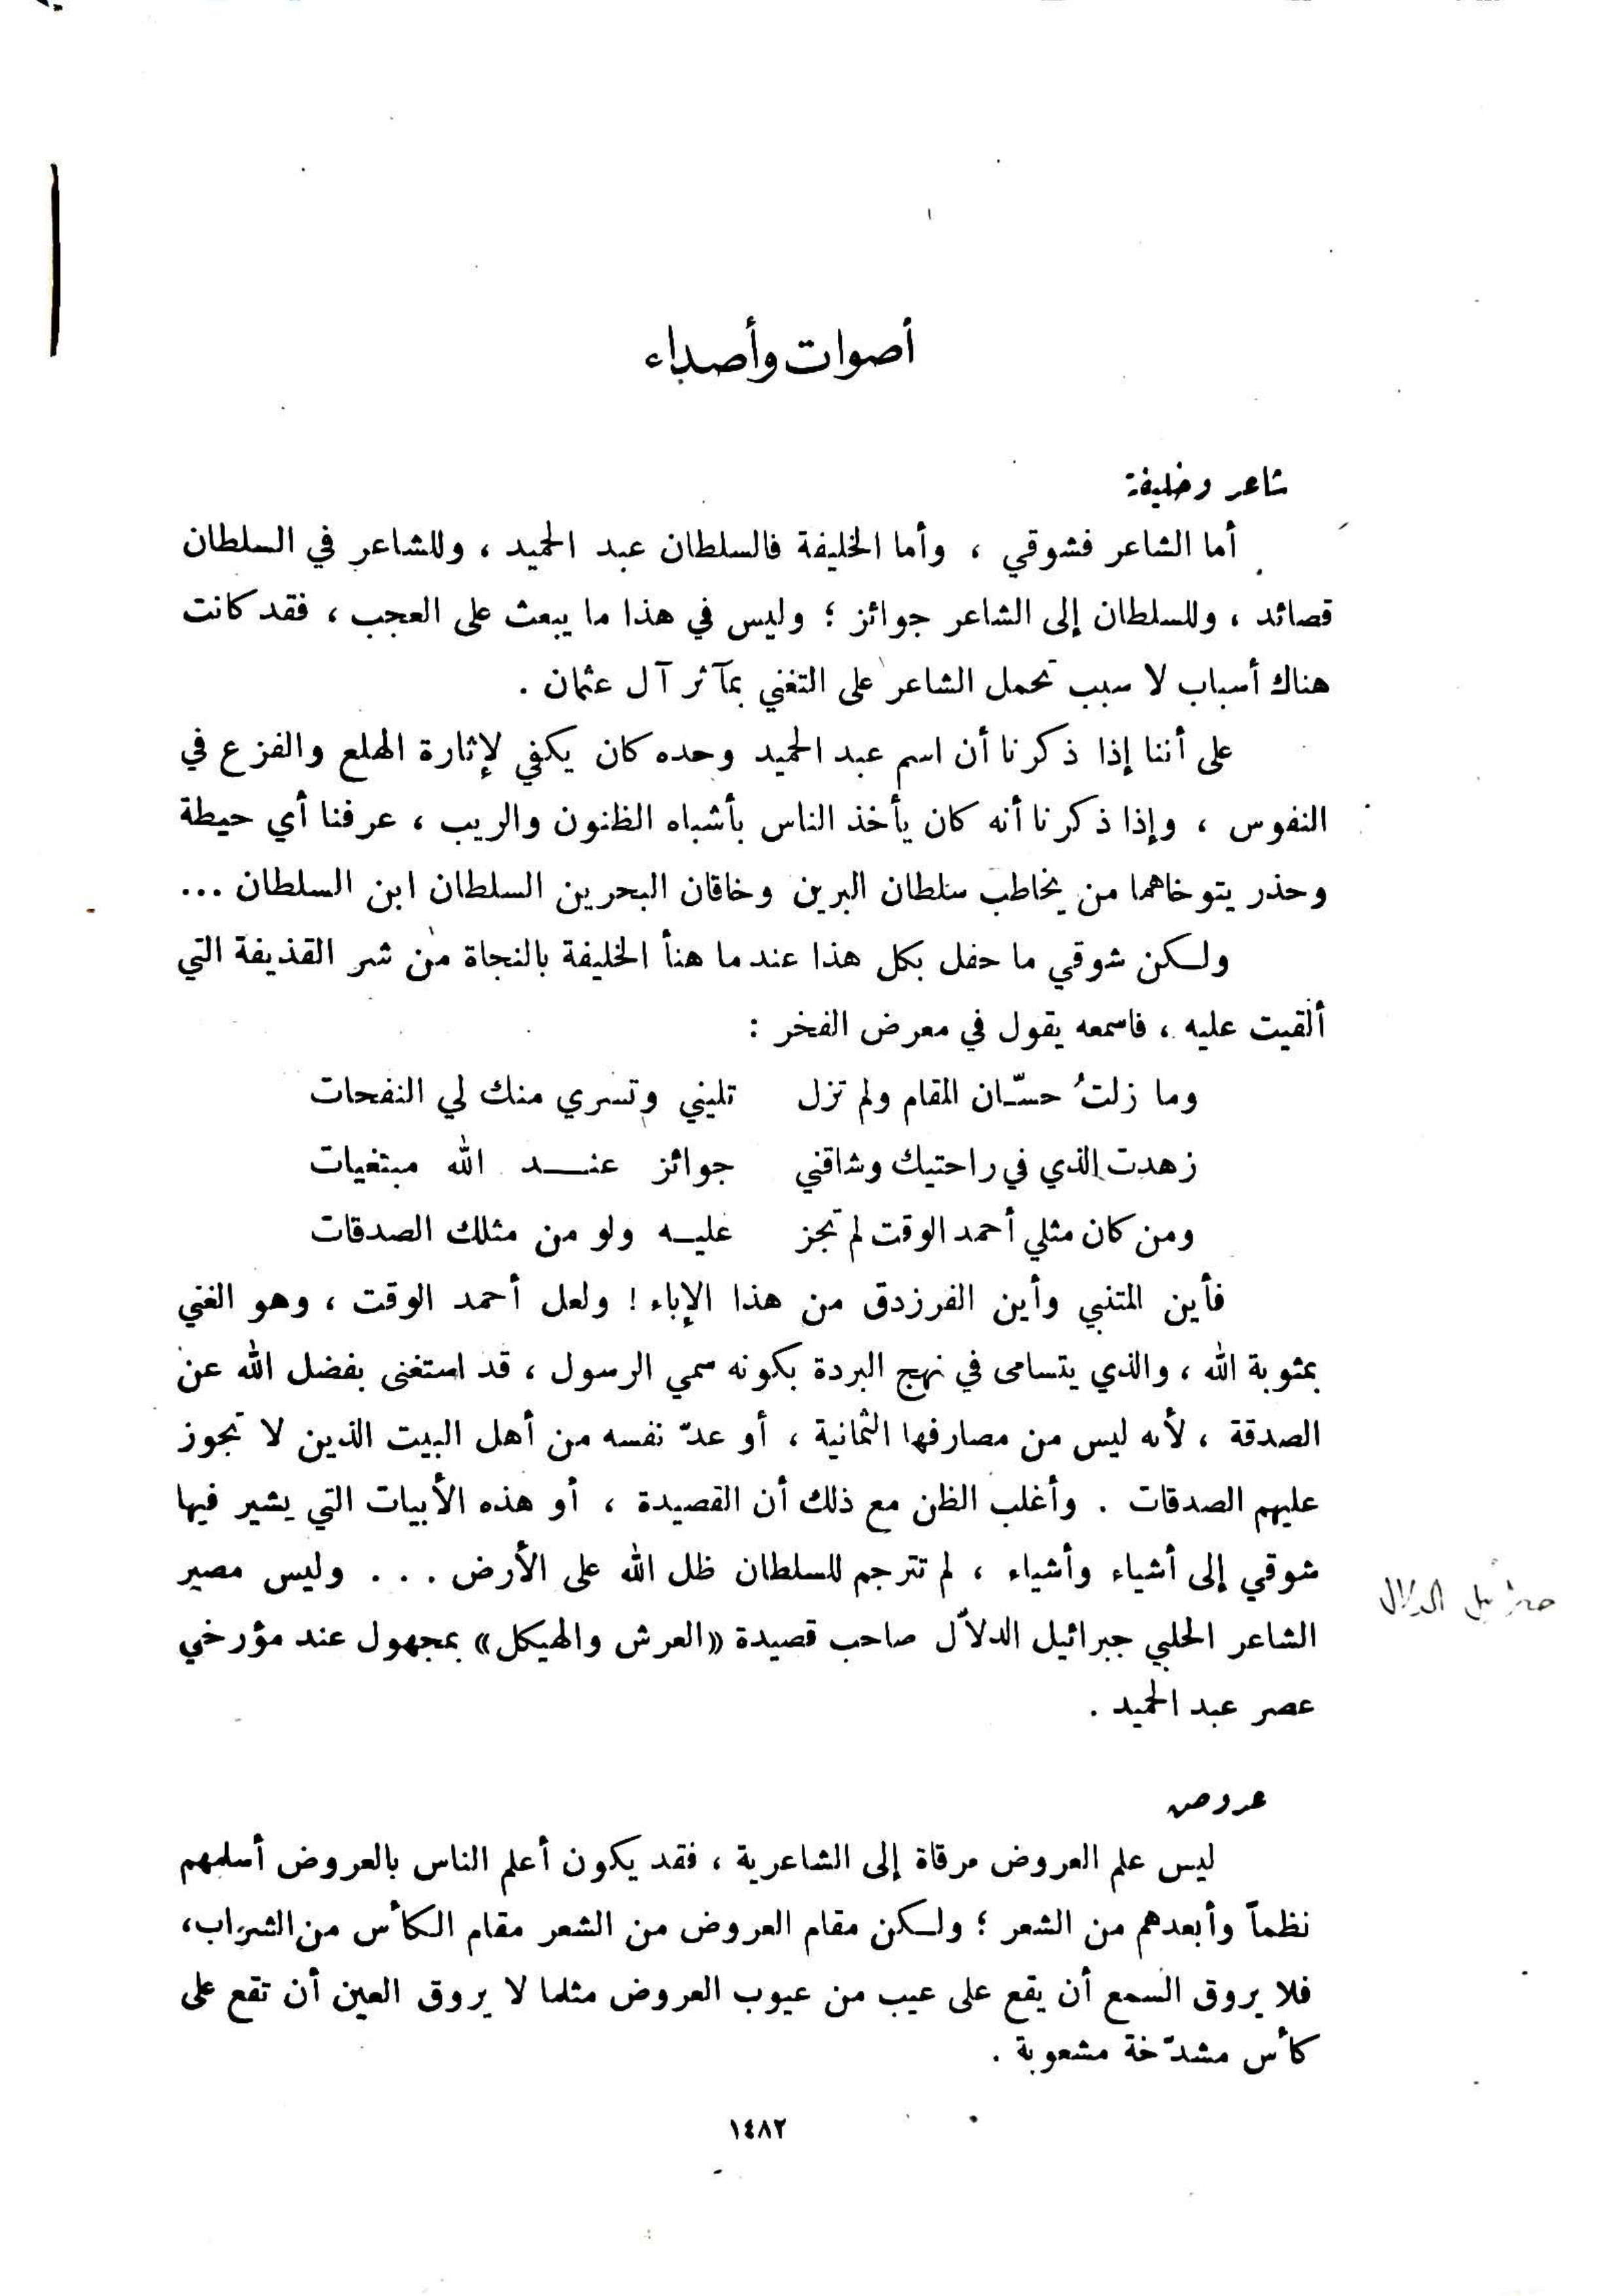 أصوات وأصداء
شاعر وخليفة
أما الشاعر فشوقي ، وأما الخليفة فالسلطان عبد الحميد ، وللشاعر في السلطان
قصائد ، وللسلطان إلى الشاعر جوائز ؛ وليس في هذا ما يبعث على العجب ، فقد كانت
هناك أسباب لا سبب تحمل الشاعر على التغني بمآثر آل عثمان .
على أننا إذا ذكرنا أن اسم عبد الحميد وحده كان يكفي لإثارة الهلع والفزع في
النفوس ، وإذا ذكرنا أنه كان يأخذ الناس بأشباه الظنون والريب ، عرفنا أي حيطة
وحذر يتوخاهما من يخاطب سلطان البرين وخاقان البحرين السلطان ابن السلطان ...
ولكن شوقي ما حفل بكل هذا عندما هنأ الخليفة بالنجاة من شر القذيفة التي
ألقيت عليه ، فاسمعه يقول في معرض الفخر :
وما زلتُ حسّان المقام ولم تزل تليني وتسري منك لي النفحات
زهدت الذي في راحتيك وشاقني جوائز عنـد الله مبتغيات
ومن كان مثلي أحمد الوقت لم تجز عليـه ولو من مثلك الصدقات
فأين المتنبي وأين الفرزدق من هذا الإباء ! ولعل أحمد الوقت ، وهو الغني
بمثوبة الله ، والذي يتسامى في نهج البردة بكونه سمي الرسول ، قد استغنى بفضل الله عن
الصدقة ، لأنه ليس من مصارفها الثمانية ، أو عدّ نفسه من أهل البيت الذين لا تجوز
عليهم الصدقات . وأغلب الظن مع ذلك أن القصيدة ، أو هذه الأبيات التي يشير فيها
شوقي إلى أشياء وأشياء ، لم تترجم للسلطان ظل الله على الأرض . . . وليس مصير
جبرائيل الدلال
الشاعر الحلبي جبرائيل الدلاّل صاحب قصيدة «العرش والهيكل» بمجهول عند مؤرخي
عصر عبد الحميد .
عروض
ليس علم العروض مرقاة إلى الشاعرية ، فقد يكون أعلم الناس بالعروض أسلمهم
نظماً وأبعدهم من الشعر ؛ ولكن مقام العروض من الشعر مقام الكأس من الشراب،
فلا يروق السمع أن يقع على عيب من عيوب العروض مثلما لا يروق العين أن تقع على
كأس مشدّخة مشعوبة .
١٤٨٢